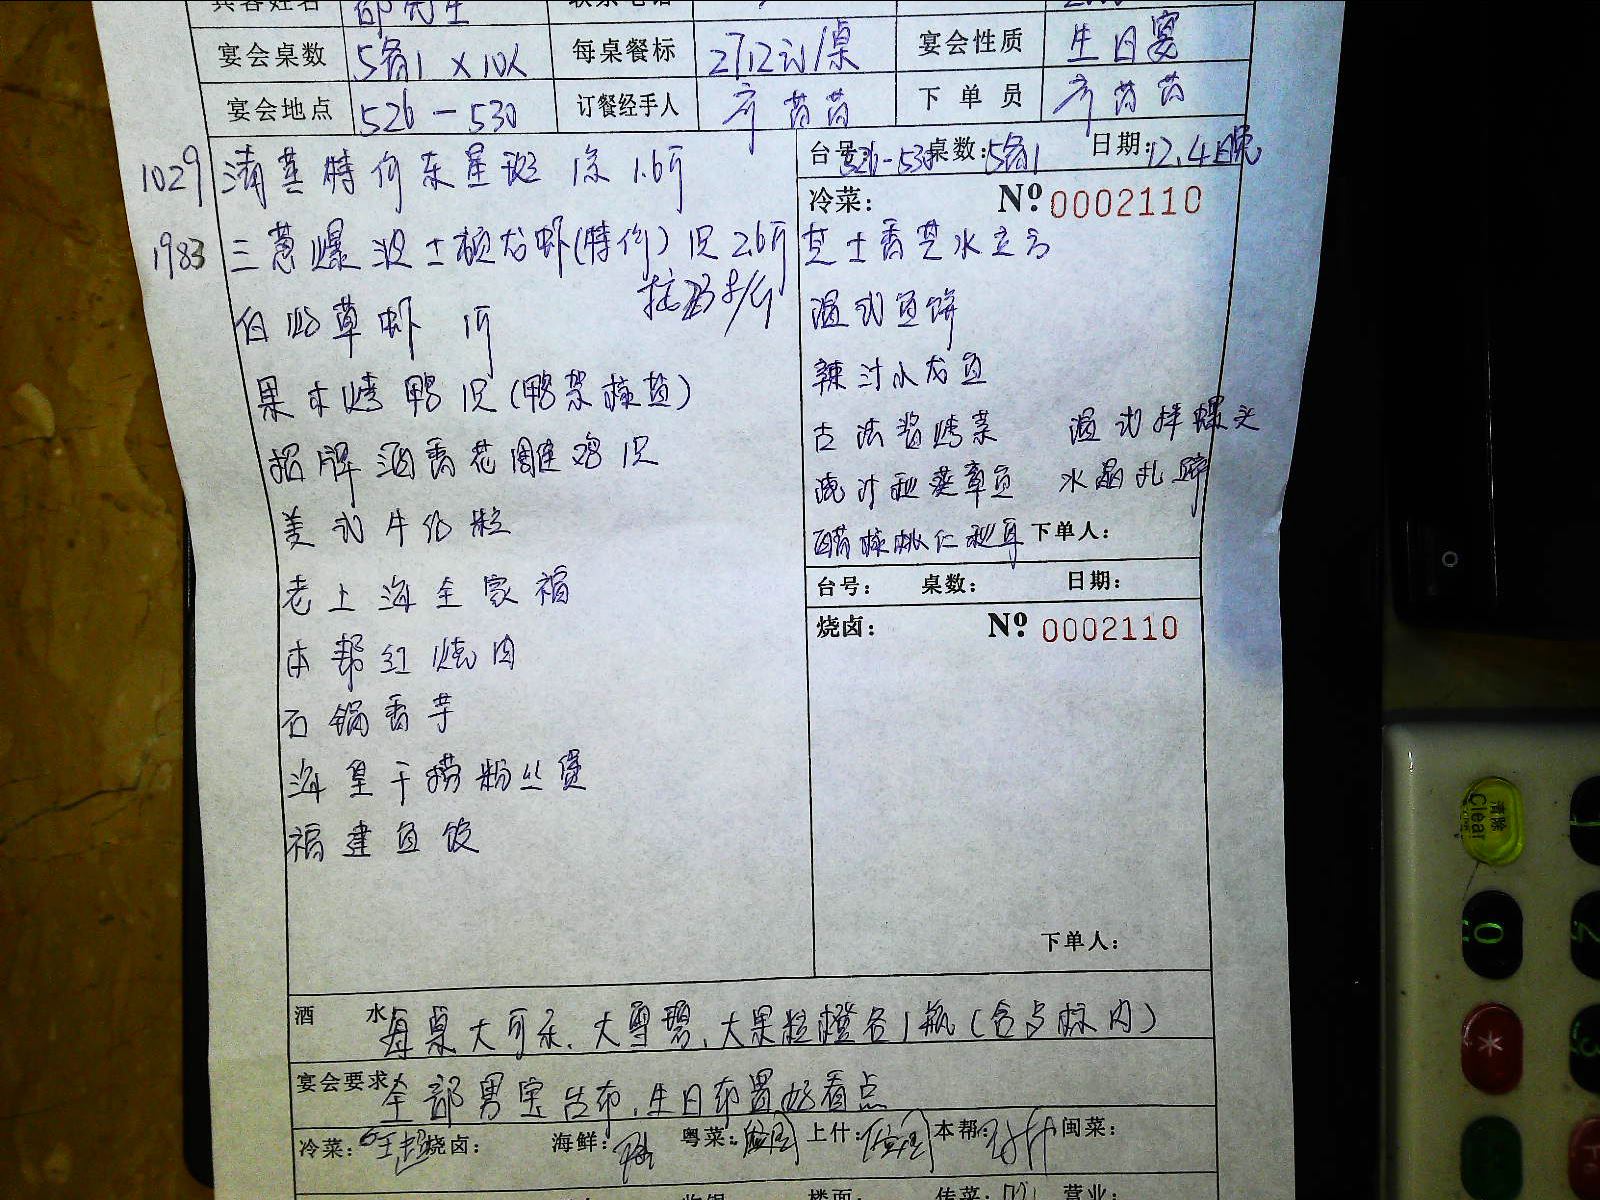 宾客姓名 邵先生 联系电话
宴会桌数 5备1 x 10人 每桌餐标 2712元/桌 宴会性质 生日宴
宴会地点 526-530 订餐经手人 齐茵茵 下单员 齐茵茵
台号: 526-530 桌数: 5备1 日期: 12.4日晚
1029 清蒸特价东星斑 1条 1.6斤
冷菜: № 0002110
1983 三葱爆波士顿龙虾(特价) 1只 2.6斤
白灼草虾 1斤
果木烤鸭1只(鸭架椒盐)
招牌酒香花雕鸡1只
美式牛仔粒
老上海全家福
本帮红烧肉
石锅香芋
海皇干捞粉丝煲
福建鱼饺
芝士香芒水立方
温式鱼饼
辣汁小龙鱼
古法酱烤菜 温式拌螺头
捞汁秋葵章鱼 水晶扎蹄
醋椒桃仁秋耳 下单人:
台号: 桌数: 日期:
烧卤: № 0002110
下单人:
酒水 每桌大可乐、大雪碧、大果粒橙各1瓶(含与标内)
宴会要求 全部男宝台布,生日布置好看点
冷菜: 烧卤: 海鲜: 粤菜: 上什: 本帮: 闽菜:
楼面: 传菜: 营业:
清除
Clear
0
*